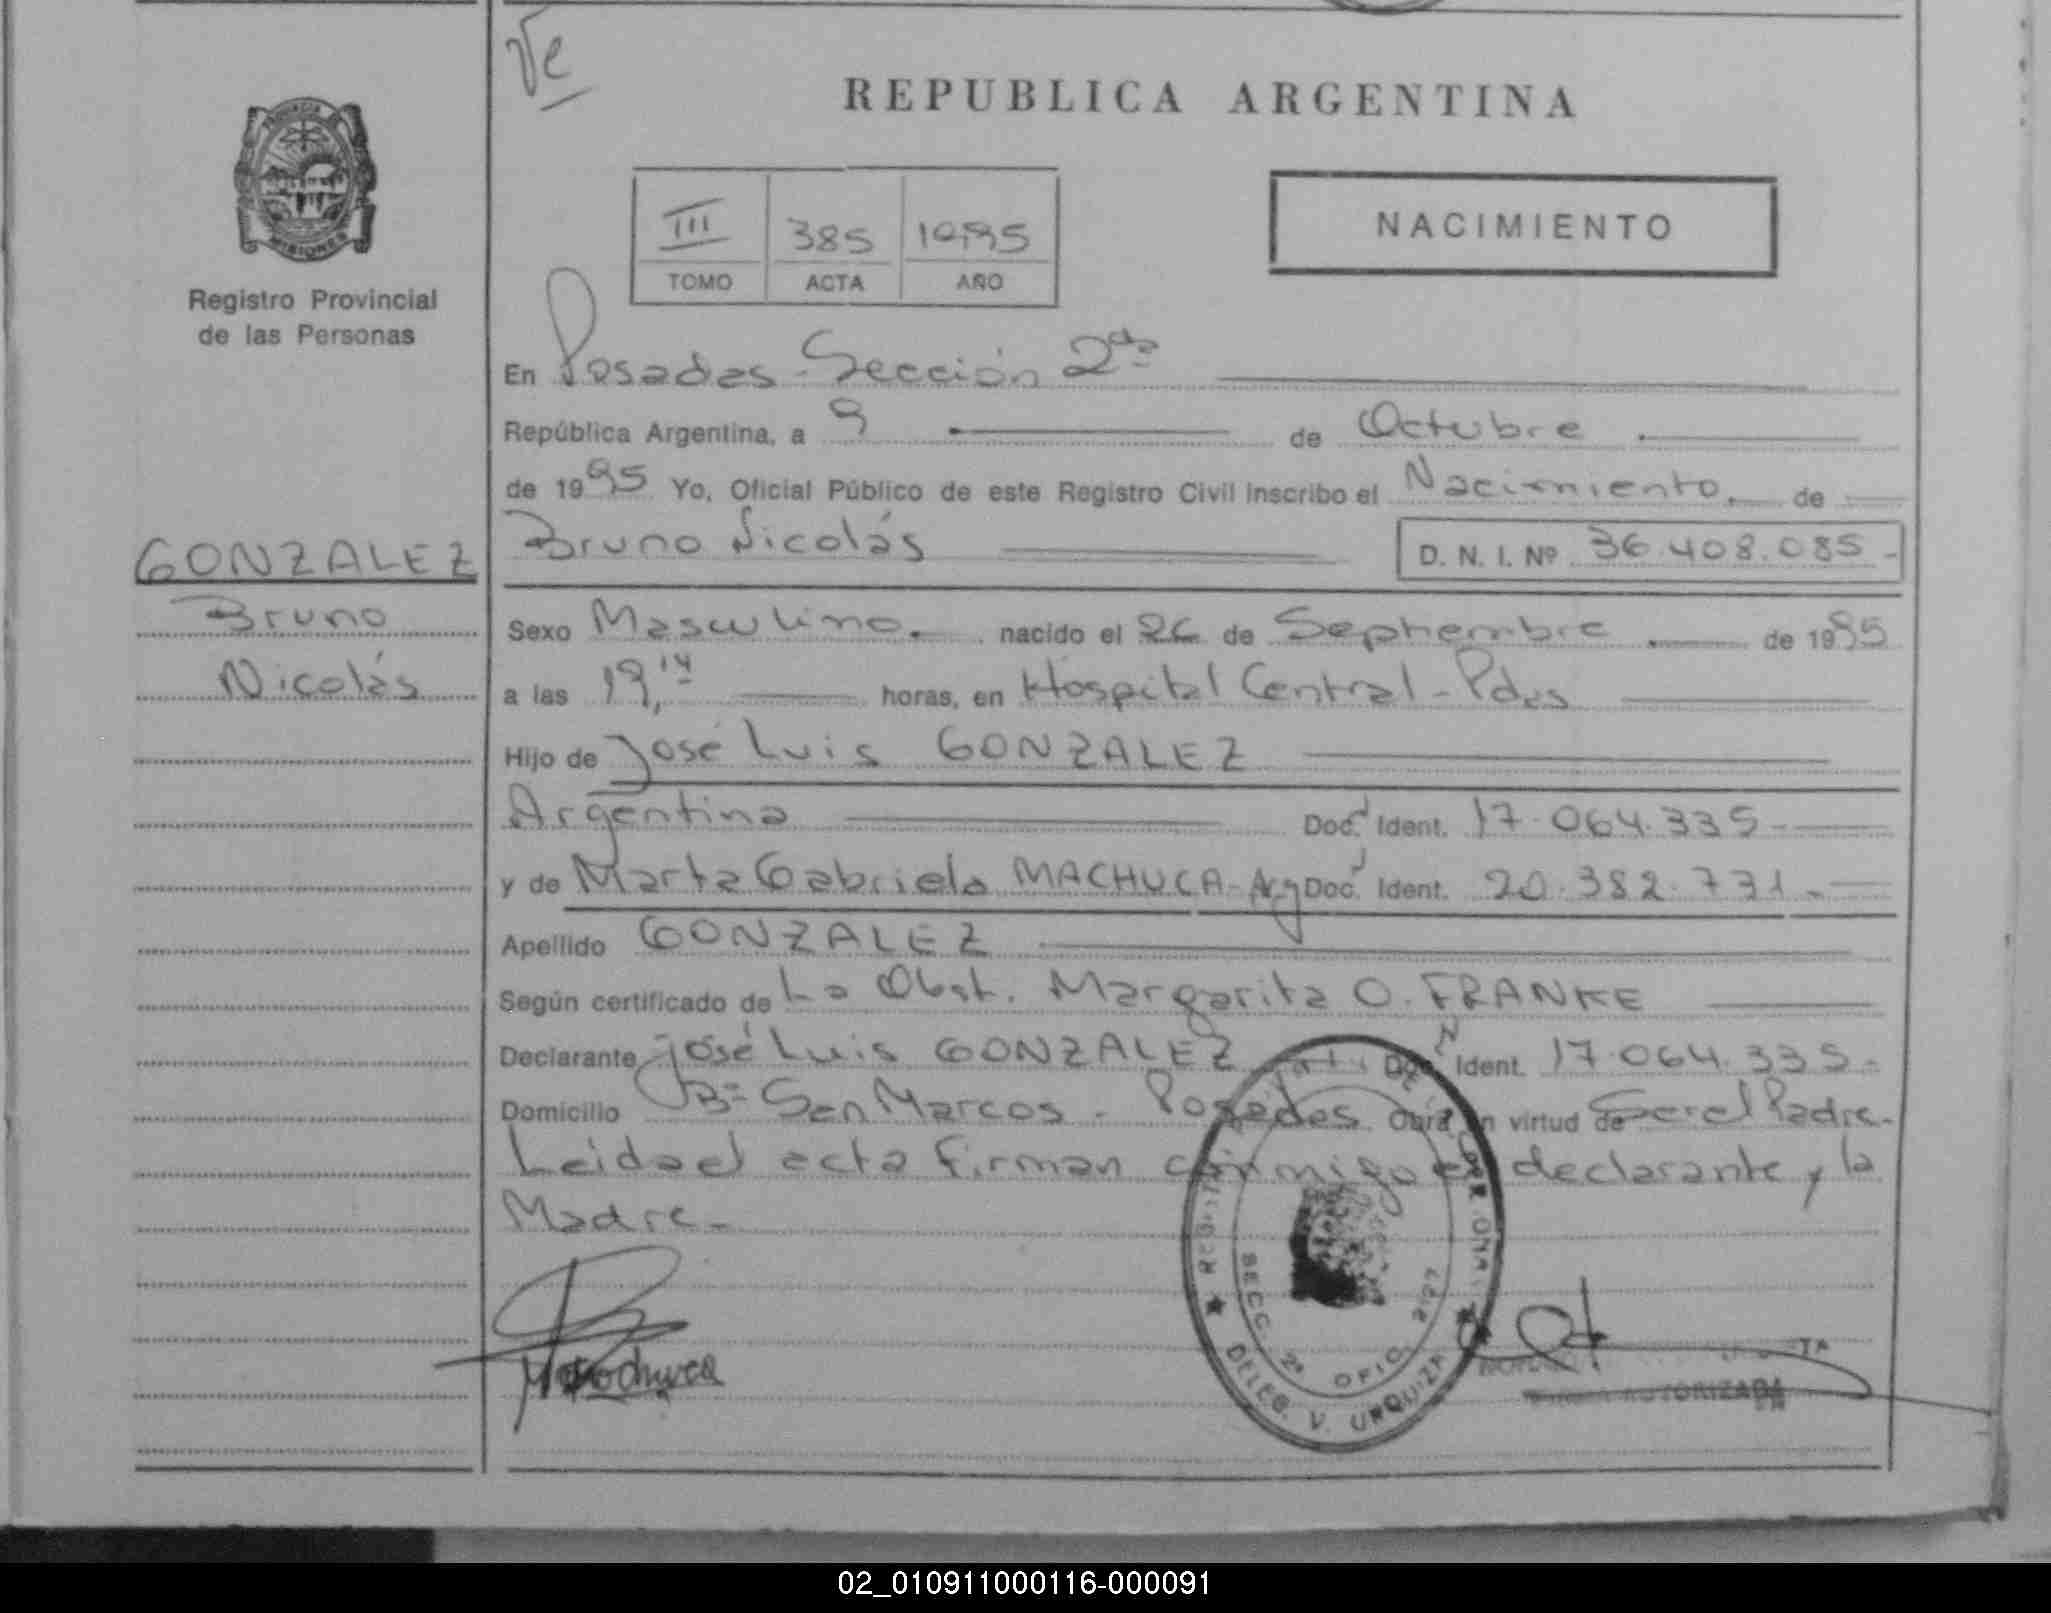 Ve
REPUBLICA ARGENTINA
PROVINCIA
MISIONES
Registro Provincial
de las Personas
III 385 1995
TOMO ACTA AÑO
NACIMIENTO
En Posadas - Sección 2da
República Argentina, a 9 de Octubre
de 1995 Yo, Oficial Público de este Registro Civil inscribo el Nacimiento de
GONZALEZ
Bruno
Nicolás
Bruno Nicolás D. N. I. Nº 36.408.085 -
Sexo Masculino. nacido el 26 de Septiembre de 1995
a las 19,14 horas, en Hospital Central - Pdas
Hijo de José Luis GONZALEZ
Argentina Doc. Ident. 17.064.335 -
y de Marta Gabriela MACHUCA - Arg Doc. Ident. 20.382.731 -
Apellido GONZALEZ
Según certificado de La Obst. Margarita O. FRANKE
Declarante José Luis GONZALEZ Doc. Ident. 17.064.335 -
Domicilio Bº San Marcos - Posadas Obra en virtud de Ser el Padre.
Leida el acta firman conmigo el declarante y la
Madre -
Machuca
SECC. 2ª OFIC. 2127
DELEG. V. URQUIZA
AUTORIZADA
02_010911000116-000091